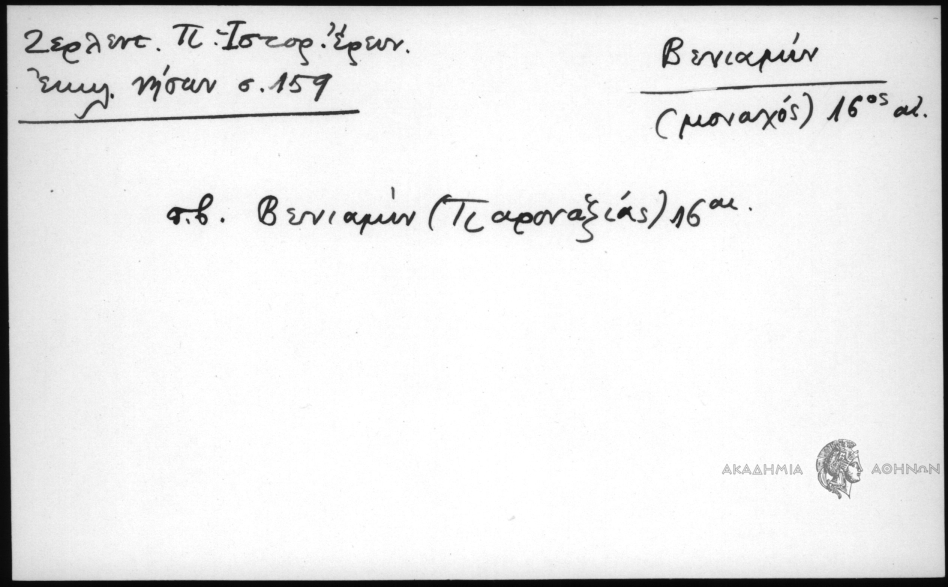 Ζερλεντ. Π. Ἱστορ. Ἔρευν.
Ἐκκλ. νήσων σ. 159
Βενιαμίν
(μοναχός) 16ος αἰ.
π.β. Βενιαμίν (Παροναξίας) 16 αι.
ΑΚΑΔΗΜΙΑ ΑΘΗΝΩΝ